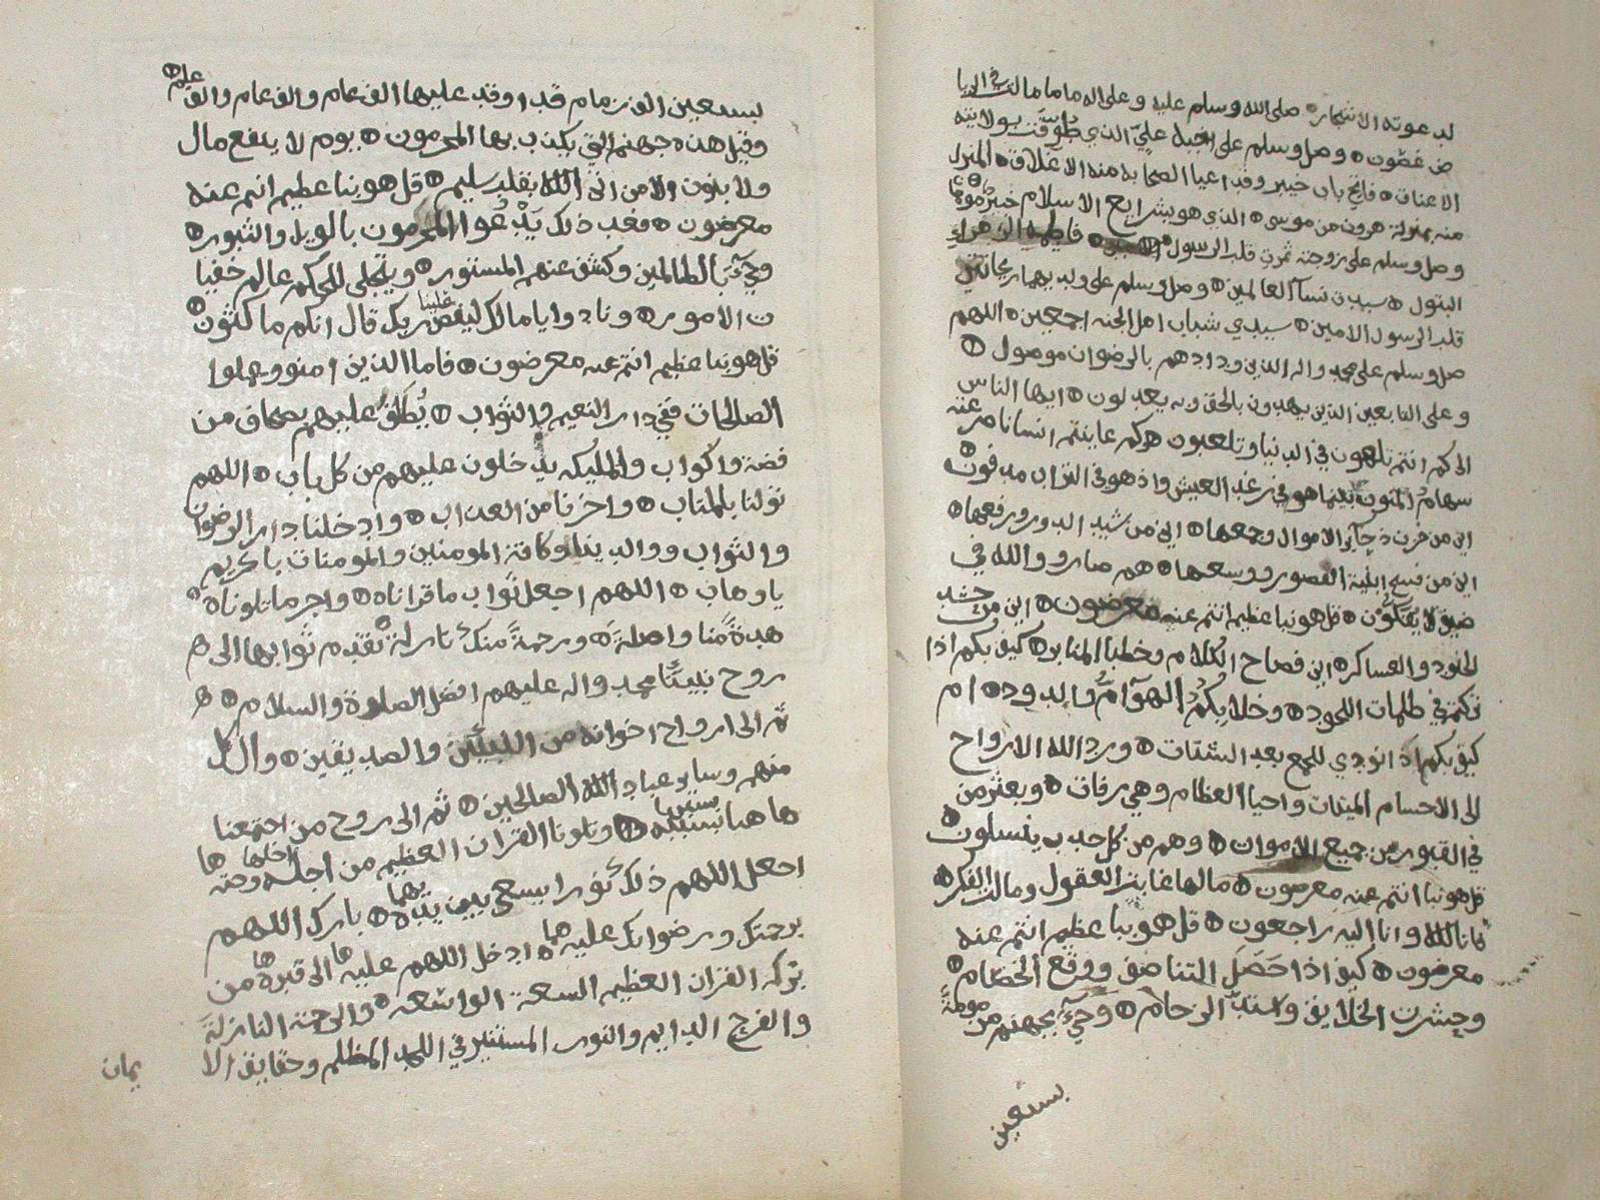 لدعوته الاشجار صلى الله وسلم عليه وعلى اله ما مالت في الربا
ض غصون وصل وسلم على اخيه علي الذي طوقت بولايته
الاعناق فاتح باب خيبر وقد اعيا الصحابه منه الاغلاق المنزل
منه بمنزلة هرون من موسى الذي هو بشرايع الاسلام خبير
وصل وسلم على زوجته ثمرت قلب الرسول فاطمة الزهراء
البتول سيدت نسآ العالمين وصل وسلم على ولديهما ريحانتين
قلب الرسول الامين سيدي شباب اهل الجنه اجمعين اللهم
صل وسلم على محمد واله الذين ودادهم بالرضوان موصول
وعلى التابعين الذين يهدون بالحق وبه يعدلون ايها الناس
الى كم انتم تلهون في الدنيا وتلعبون وكم عاينتم انسانا مزقته
سهام المنون بينما هو في رغد العيش واذ هو في التراب مدفون
اين من خزن ذخآير الاموال وجمعها اين من شيد الدور ورفعها
اين من فسح ابنية القصور ووسعها هم صارو والله في
ضيق لا يفكون قل هو نبا عظيم انتم عنه معرضون اين من حشد
الجنود والعساكر اين فصاح الكلام وخطبا المنابر كيف بكم اذا
نكتم في ظلمات اللحود وخلا بكم الهوآم والدود ام
كيف بكم اذا نودي للجمع بعد الشتات ورد الله الارواح
الى الاجسام الميتات واحيا العظام وهي رفات وبعثر من
في القبور من جميع الاموات وهم من كل حدب ينسلون
قل هو نبا انتم عنه معرضون ما لها غابت العقول وما لت الفكر
فانا لله وانا اليه راجعون قل هو نبا عظيم انتم عنه
معرضون كيف اذا حصل التناضف ووقع الخصام
وحشرت الخلايق واشتد الزحام وجيء بجهنم من مومة
بسبعين
بسبعين الف زمام قد اوقد عليها الف عام والف عام والف عام
وقيل هذه جهنم التي يكذب بها المجرمون يوم لا ينفع مال
ولا بنون الا من اتى الله بقلب سليم قل هو نبا عظيم انتم عنه
معرضون فعند ذلك يدعوا المجرمون بالويل والثبور
وجيء بالظالمين وكشف عنهم المستور ويتجلى للحكم عالم خفيا
ت الامور ونادوا يا مالك ليقض علينا ربك قال انكم ماكثون
قل هو نبا عظيم انتم عنه معرضون فاما الذين امنو وعملوا
الصالحات ففي دار النعيم والثواب يطاف عليهم بصحاف من
فضة واكواب والمليكه يدخلون عليهم من كل باب اللهم
تولنا بالمتاب واجرنا من العذاب وادخلنا دار الرضوان
والثواب ووالدينا وكافة المومنين والمومنات يا كريم
يا وهاب اللهم اجعل ثواب ما قراناه واجر ما تلوناه
هدية منا واصلة ورحمة منك نازلة نقدم ثوابها الى
روح نبينا محمد واله عليهم افضل الصلوة والسلام
ثم الى ارواح اخوانه من النبيين والصديقين وال كل
منهم وساير عباد الله الصالحين ثم الى روح من اجتمعنا
ها هنا بسببه وتلونا القران العظيم من اجله
اجعل اللهم ذلك نورا يسعى بين يديه بارك اللهم
برحمتك ورضوانك عليه ادخل اللهم عليه الى قبره من
بركه القران العظيم السعة الواسعه والرحمة النازلة
والفرج الدايم والنور المستنير في اللحد المظلم وحقايق الا
يمان